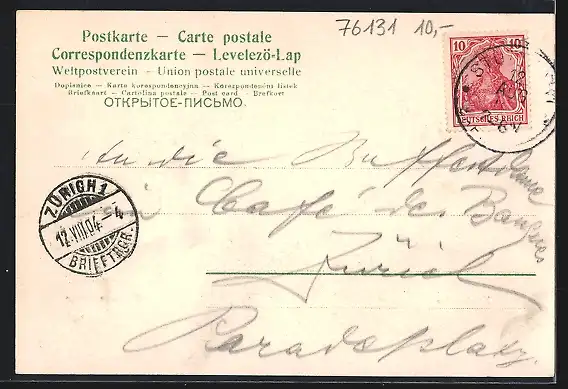 76131 10,-
Postkarte — Carte postale
Correspondenzkarte — Levelezö-Lap
Weltpostverein - Union postale universelle
Dopisnice - Karta korespondencyjna - Korespondenční listek
Briefkaart - Cartolina postale - Post card - Brefkort
ОТКРЫТОЕ-ПИСЬМО.
10 10
DEUTSCHES REICH
ZÜRICH 1
12.VIII.04- 4
BRIEFTRGR.
An die Buffetdame
Café des Banques
Zürich
Paradeplatz